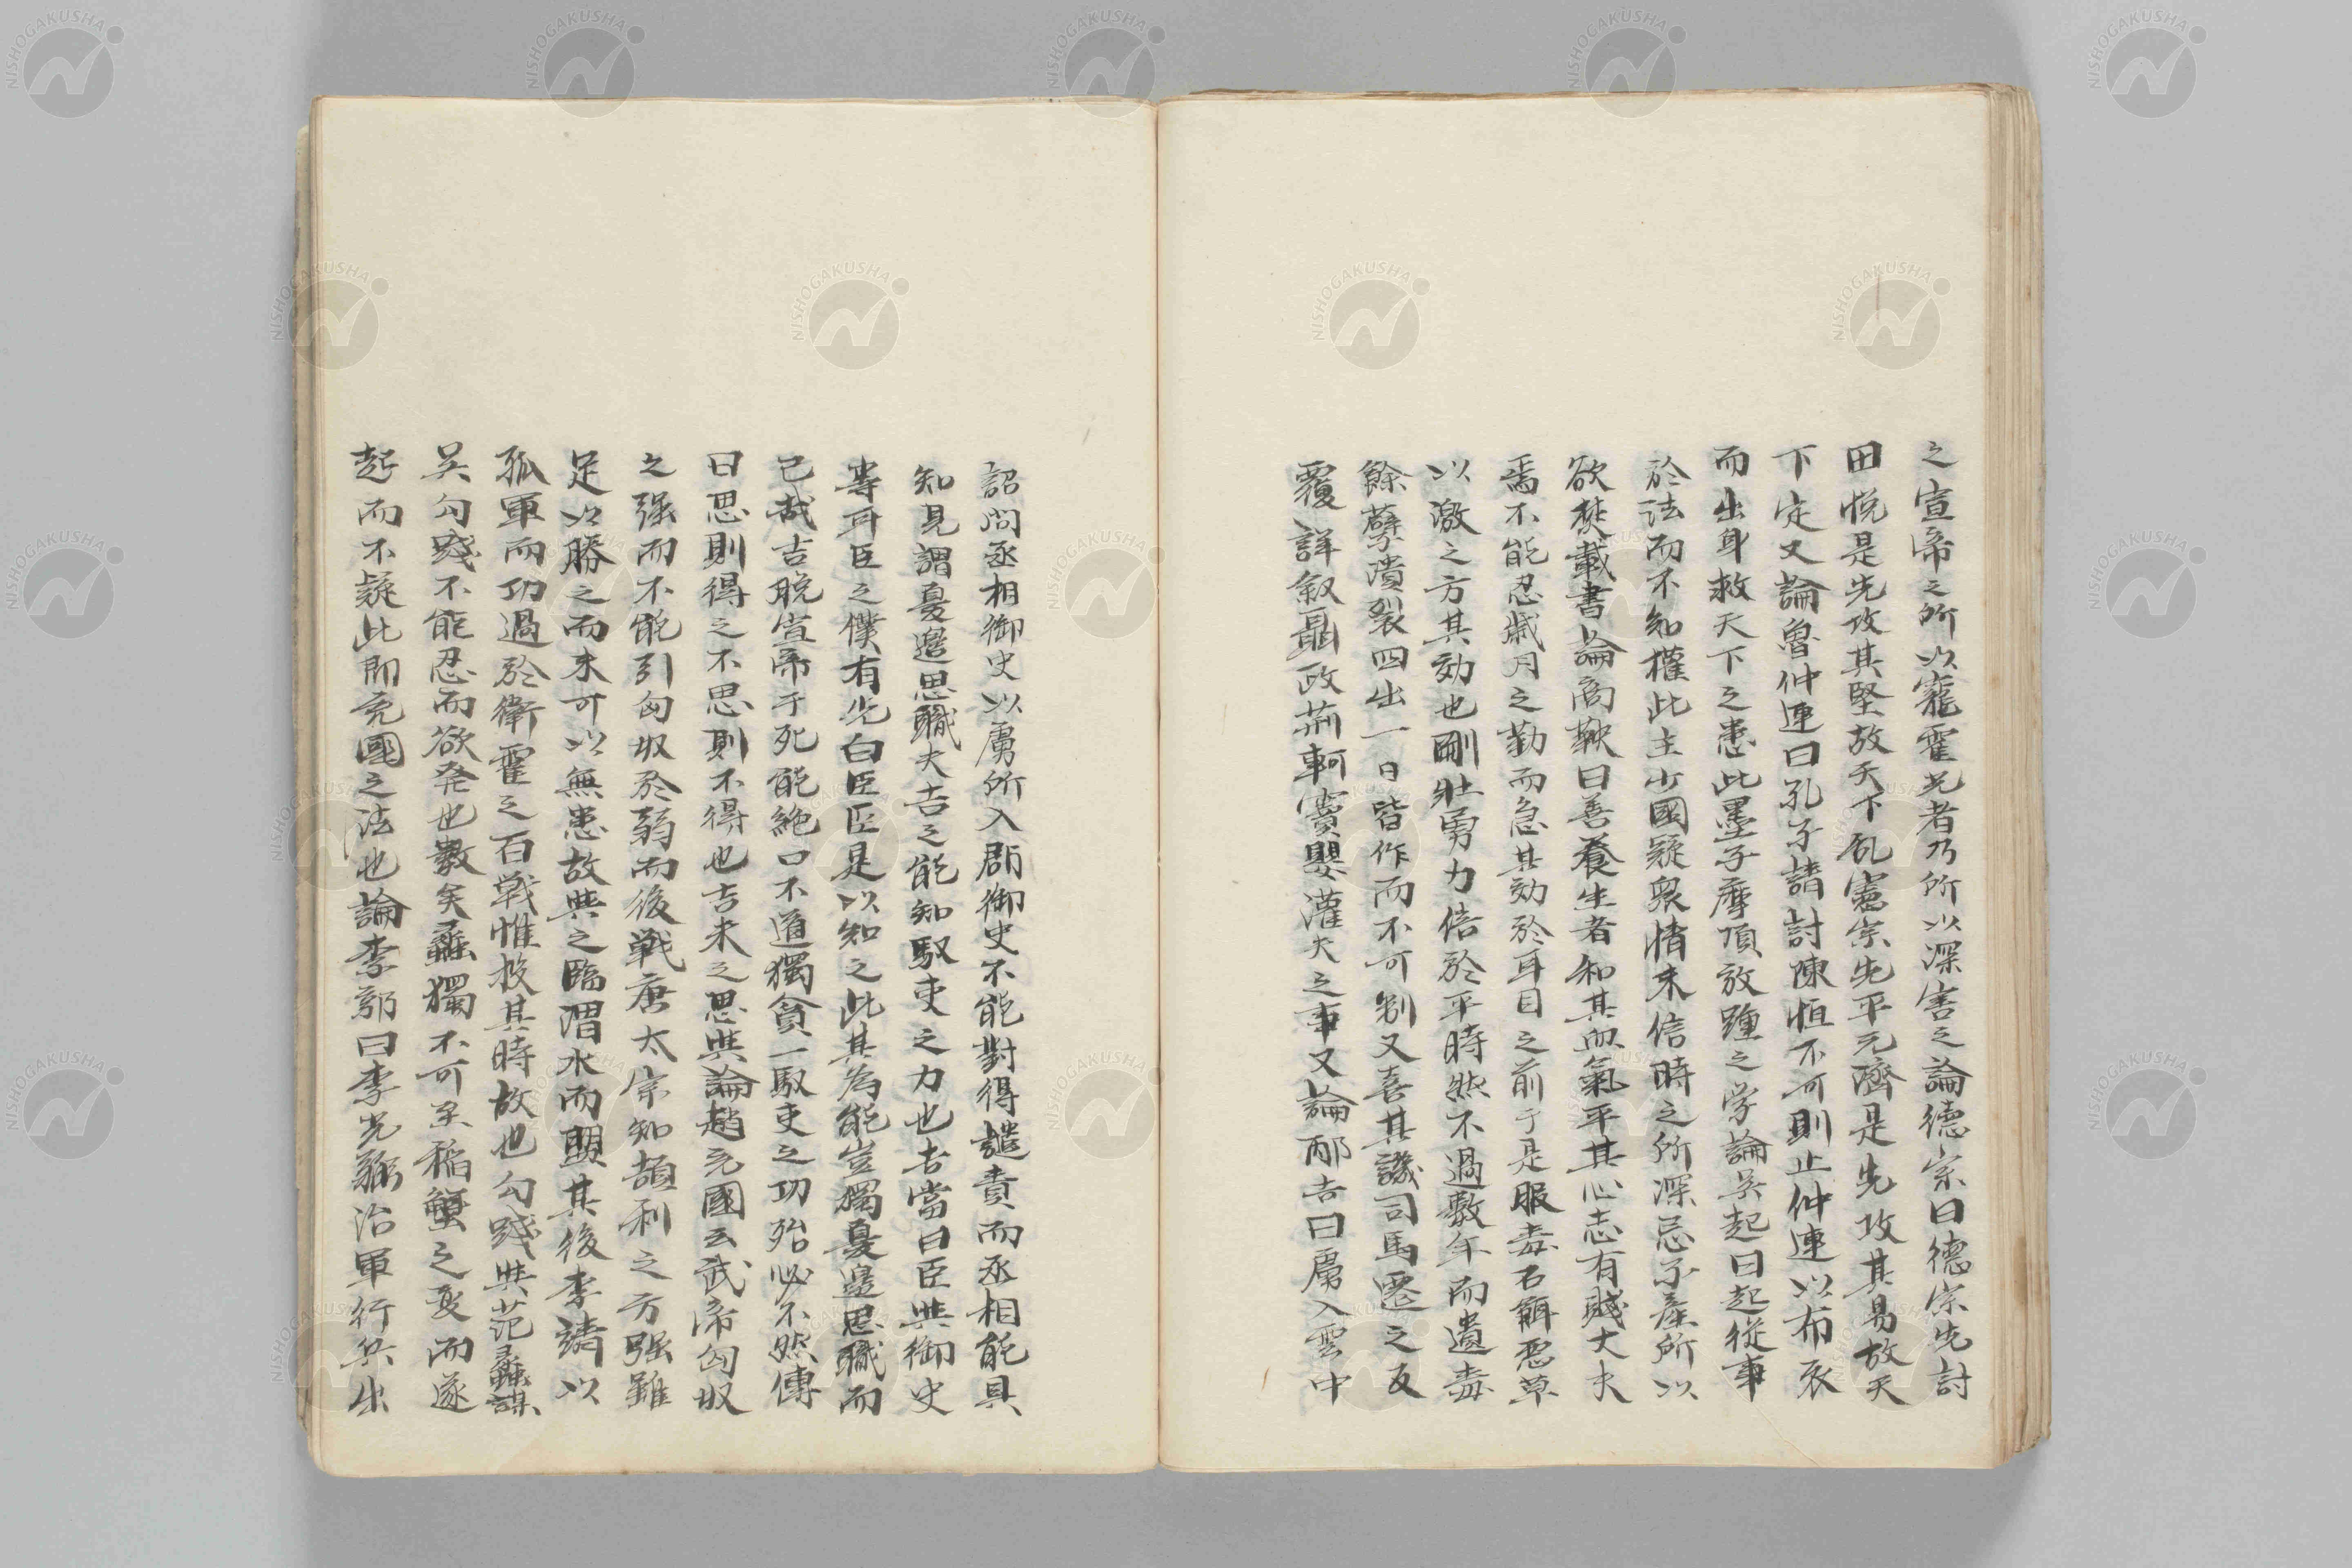 之宣帝之所以寵霍光者乃所以深害之論德宗曰德宗先討
田悦是先攻其堅故天下乱憲宗先平元濟是先攻其易故天
下定又論魯仲連曰孔子請討陳恒不可則止仲連以布衣
而出身救天下之患此墨子摩頂放踵之学論吳起曰起從事
於法而不知權此主少國疑衆情未信時之所深忌子産所以
欲焚載書論商鞅曰善養生者知其血氣平其心志有賤丈夫
焉不能忍歲月之勤而急其効於耳目之前于是服毒石餌惡草
以激之方其効也剛壯勇力倍於平時然不過數年而遺毒
餘孽潰裂四出一日皆作而不可制又喜其譏司馬遷之反
覆詳叙聶政荊軻竇嬰灌夫之事又論邴吉曰虜入雲中
詔問丞相御史以虜所入郡御史不能對得譴責而丞相能具
知見謂憂邊思職夫吉之能知馭吏之力也吉當曰臣與御史
等耳臣之僕有先白臣臣是以知之此其為能豈獨憂邊思職而
已哉吉脫宣帝于死能絶口不道獨貪一馭吏之功殆必不然傳
曰思則得之不思則不得也吉未之思與論趙充國云武帝匈奴
之强而不能引匈奴於弱而後戰唐太宗知頡利之方强雖
足以勝之而未可以無患故與之臨渭水而盟其後李靖以
孤軍而功過於衛霍之百戰惟投其時故也勾踐與范蠡謀
吳勾踐不能忍而欲発也數矣蠡獨不可至稻蟹之變而遂
起而不疑此即充國之法也論李郭曰李光弼治軍行兵出
NISHOGAKUSHA